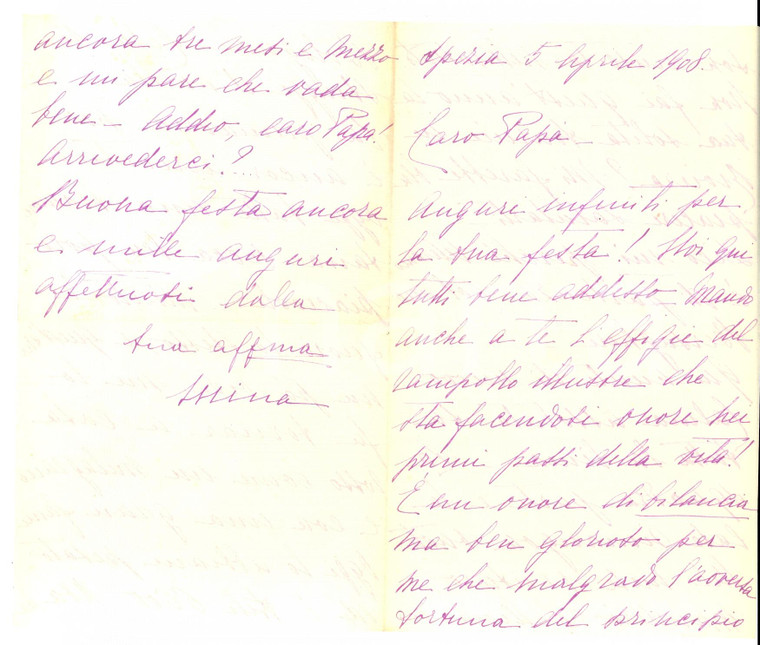 Spezia 5 Aprile 1908.
Caro Papà -
Auguri infiniti per
la tua festa! Noi qui
tutti bene addesso - Mando
anche a te l'effigie del
rampollo illustre che
sta facendosi onore nei
primi passi della vita!
È un onore di bilancia
ma ben glorioso per
me che malgrado l'avversa
fortuna del principio
ancora tre mesi e mezzo
e mi pare che vada
bene - Addio, caro Papà!
Arrivederci?...
Buona festa ancora
e mille auguri
affettuosi dalla
tua affma